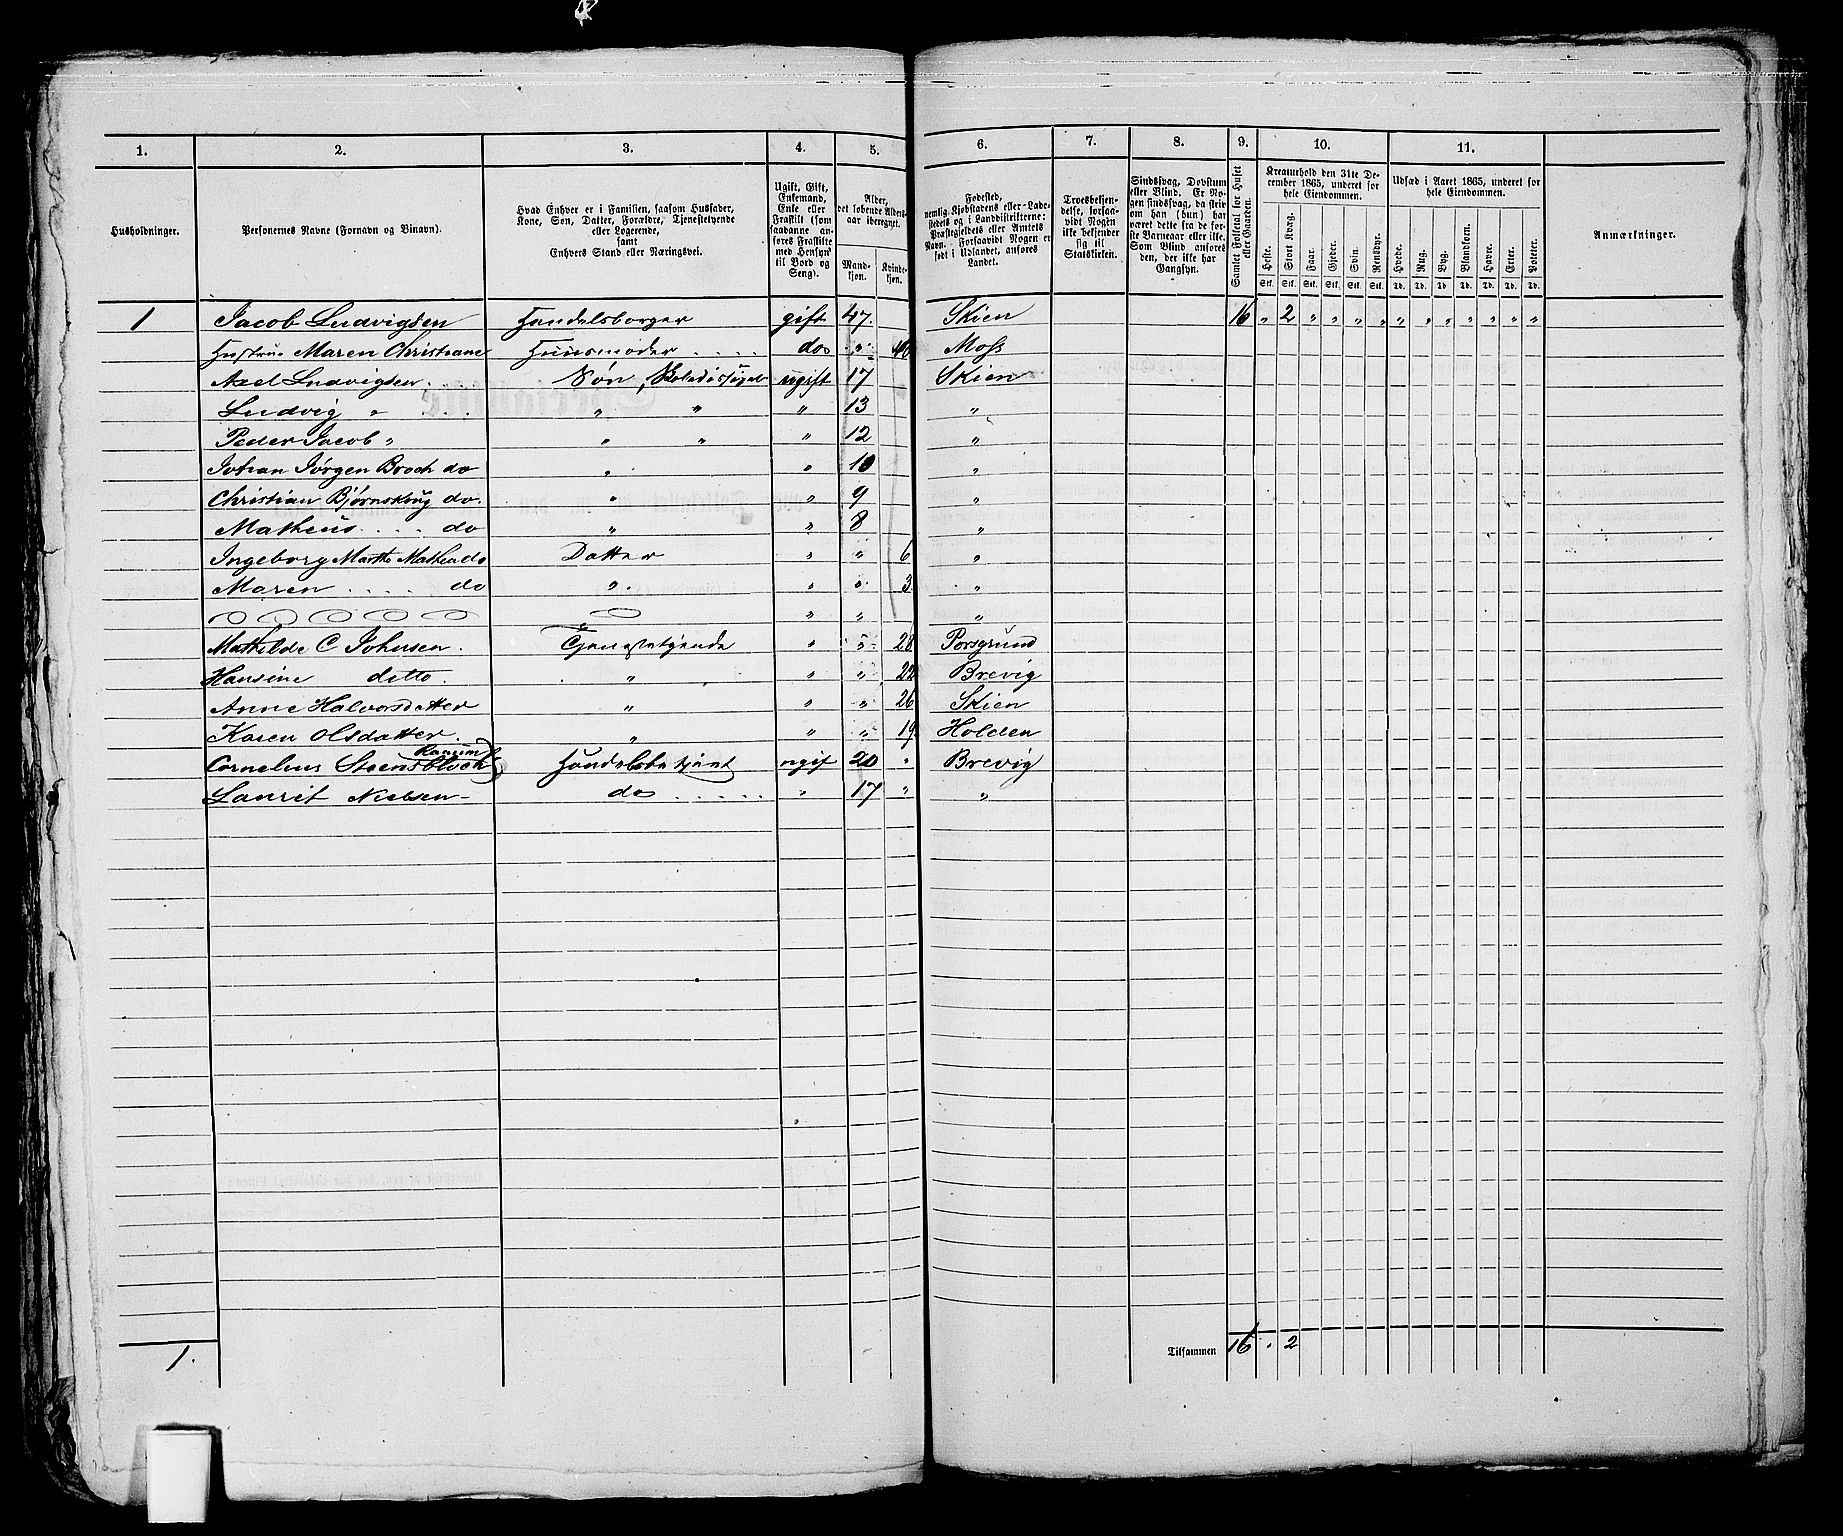 1. 2. 3. 4. 5. 6. 7. 8. 9. 10. 11.
Husholdninger.
Personernes Navne (Fornavn og Binavn).
Hvad Enhver er i Familien, saasom Husfader,
Kone, Søn, Datter, Forældre, Tjenestetyende
eller Logerende,
samt
Enhvers Stand eller Næringsvei.
Ugift, Gift,
Enkemand,
Enke eller
Fraskilt (som
saadanne an-
føres Fraskilte
med Hensyn
til Bord og
Seng).
Alder,
det løbende Alders-
aar iberegnet.
Mand-
kjøn.
Kvinde-
kjøn.
Fødested,
nemlig Kjøbstadens eller Lade-
stedets og i Landdistrikterne:
Præstegjeldets eller Amtets
Navn. — Forsaavidt Nogen er
født i Udlandet, anføres
Landet.
Troesbekjen-
delse, forsaa-
vidt Nogen
ikke bekjender
sig til
Statskirken.
Sindssvag, Døvstum
eller Blind. Er No-
gen sindssvag, da skriv
om han (hun) har
været dette fra de før-
ste Barneaar eller ikke.
Som Blind anføres
den, der ikke har
Gangsyn.
Samlet Folketal for Huset
eller Gaarden.
Kreaturhold den 31te De-
cember 1865, underet for
hele Eiendommen.
Heste. Stort Kvæg. Faar. Gjeder. Svin. Rensdyr.
Stk. Stk. Stk. Stk. Stk. Stk.
Udsæd i Aaret 1865, underet for
hele Eiendommen.
Hvede. Rug. Byg. Blandkorn. Havre. Erter. Poteter.
Td. Td. Td. Td. Td. Td. Td.
Anmærkninger.
1 Jacob Ludvigsen Handelsborger gift 47. Skien 16 " 2 " " " " " " " " " " "
Hustrue Maren Christiane Huusmoder .... do " 40 Moss
Axel Ludvigsen. Søn, ugift 17 Skien
Ludvig " ... " " " 13 "
Peder Jacob " " " " 12 "
Johan Jørgen Broch do " " 10 "
Christian Bjørnskrug do. " " 9 "
Matheus .... do " " 8 "
Ingeborg Marthe do Datter " " 6 "
Maren ..... do " " " 3 "
" " "
Mathilde C Johnsen. Tjenestetyende " " 28 Porsgrund
Hansine ditto. " " " 22 Brevig
Anne Halvorsdatter " " " 26 Skien
Karen Olsdatter. " " " 19 Holden
Cornelius Steensbloch Handelsbetjent ugif 20 " Brevig
Laurit Nielsen do ..... " 17 " "
1.
Tilsammen 16 " 2